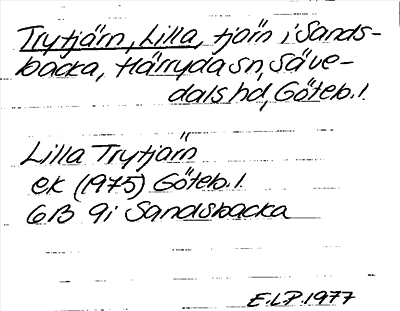 Trytjärn, Lilla, tjörn i Sands-
backa, Härryda sn, Säve-
dals hd, Göteb. l.
Lilla Trytjärn
ek (1975) Göteb. l.
6B 9i Sandsbacka
E.L.P. 1977